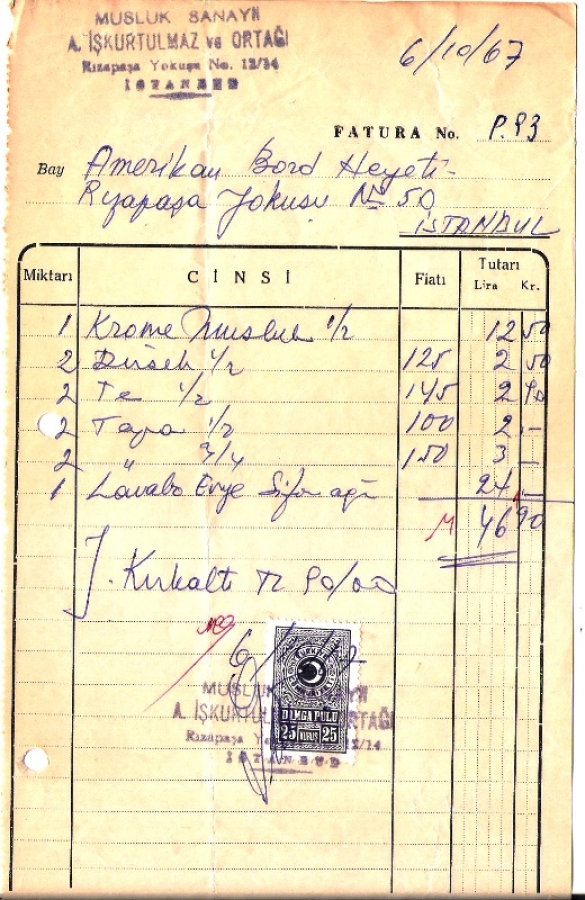 MUSLUK SANAYİİ
A. İŞKURTULMAZ ve ORTAĞI
Rızapaşa Yokuşu No. 12/14
İSTANBUL
6/10/67
FATURA No. P.93
Bay Amerikan Bord Heyeti
Rızapaşa Yokuşu No 50
İSTANBUL
Miktarı CİNSİ Fiatı Tutarı
Lira Kr.
1 Krome Musluk 1/2 12 50
2 Dirsek 1/2 125 2 50
2 Te 1/2 145 2 90
2 Tapa 1/2 100 2 -
2 " 3/4 150 3 -
1 Lavabo Evye Sifonağı 24 -
46 90
Y. Kırkaltı TL 90/00
MUSLUK SANAYİİ
A. İŞKURTULMAZ ve ORTAĞI
Rızapaşa Yokuşu No. 12/14
İSTANBUL
DAMGA PULU
25 KURUŞ 25